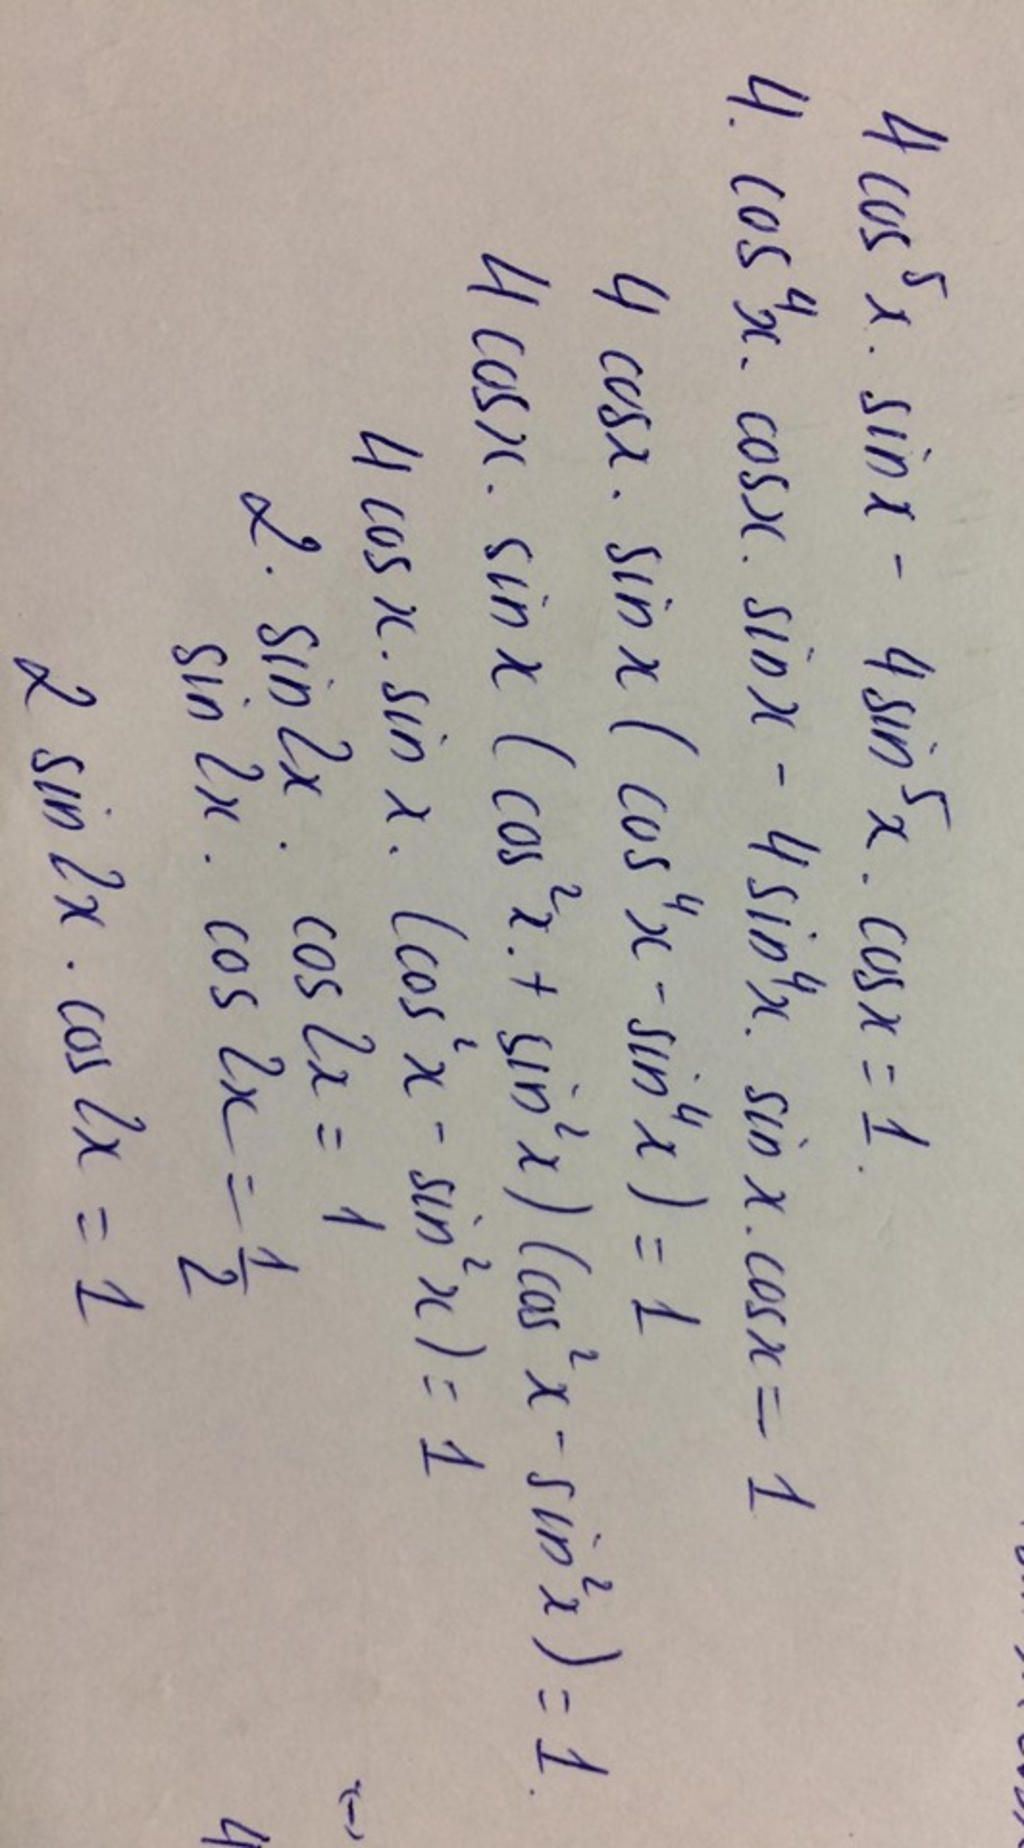 4 cos⁵x · sin x - 4 sin⁵x · cos x = 1.
4 · cos⁴x · cos x · sin x - 4 sin⁴x · sin x · cos x = 1
4 cos x · sin x ( cos⁴x - sin⁴x ) = 1
4 cos x · sin x ( cos²x + sin²x ) ( cos²x - sin²x ) = 1.
4 cos x · sin x · ( cos²x - sin²x ) = 1
2 · sin 2x · cos 2x = 1
sin 2x · cos 2x = 1/2
2 sin 2x · cos 2x = 1
4